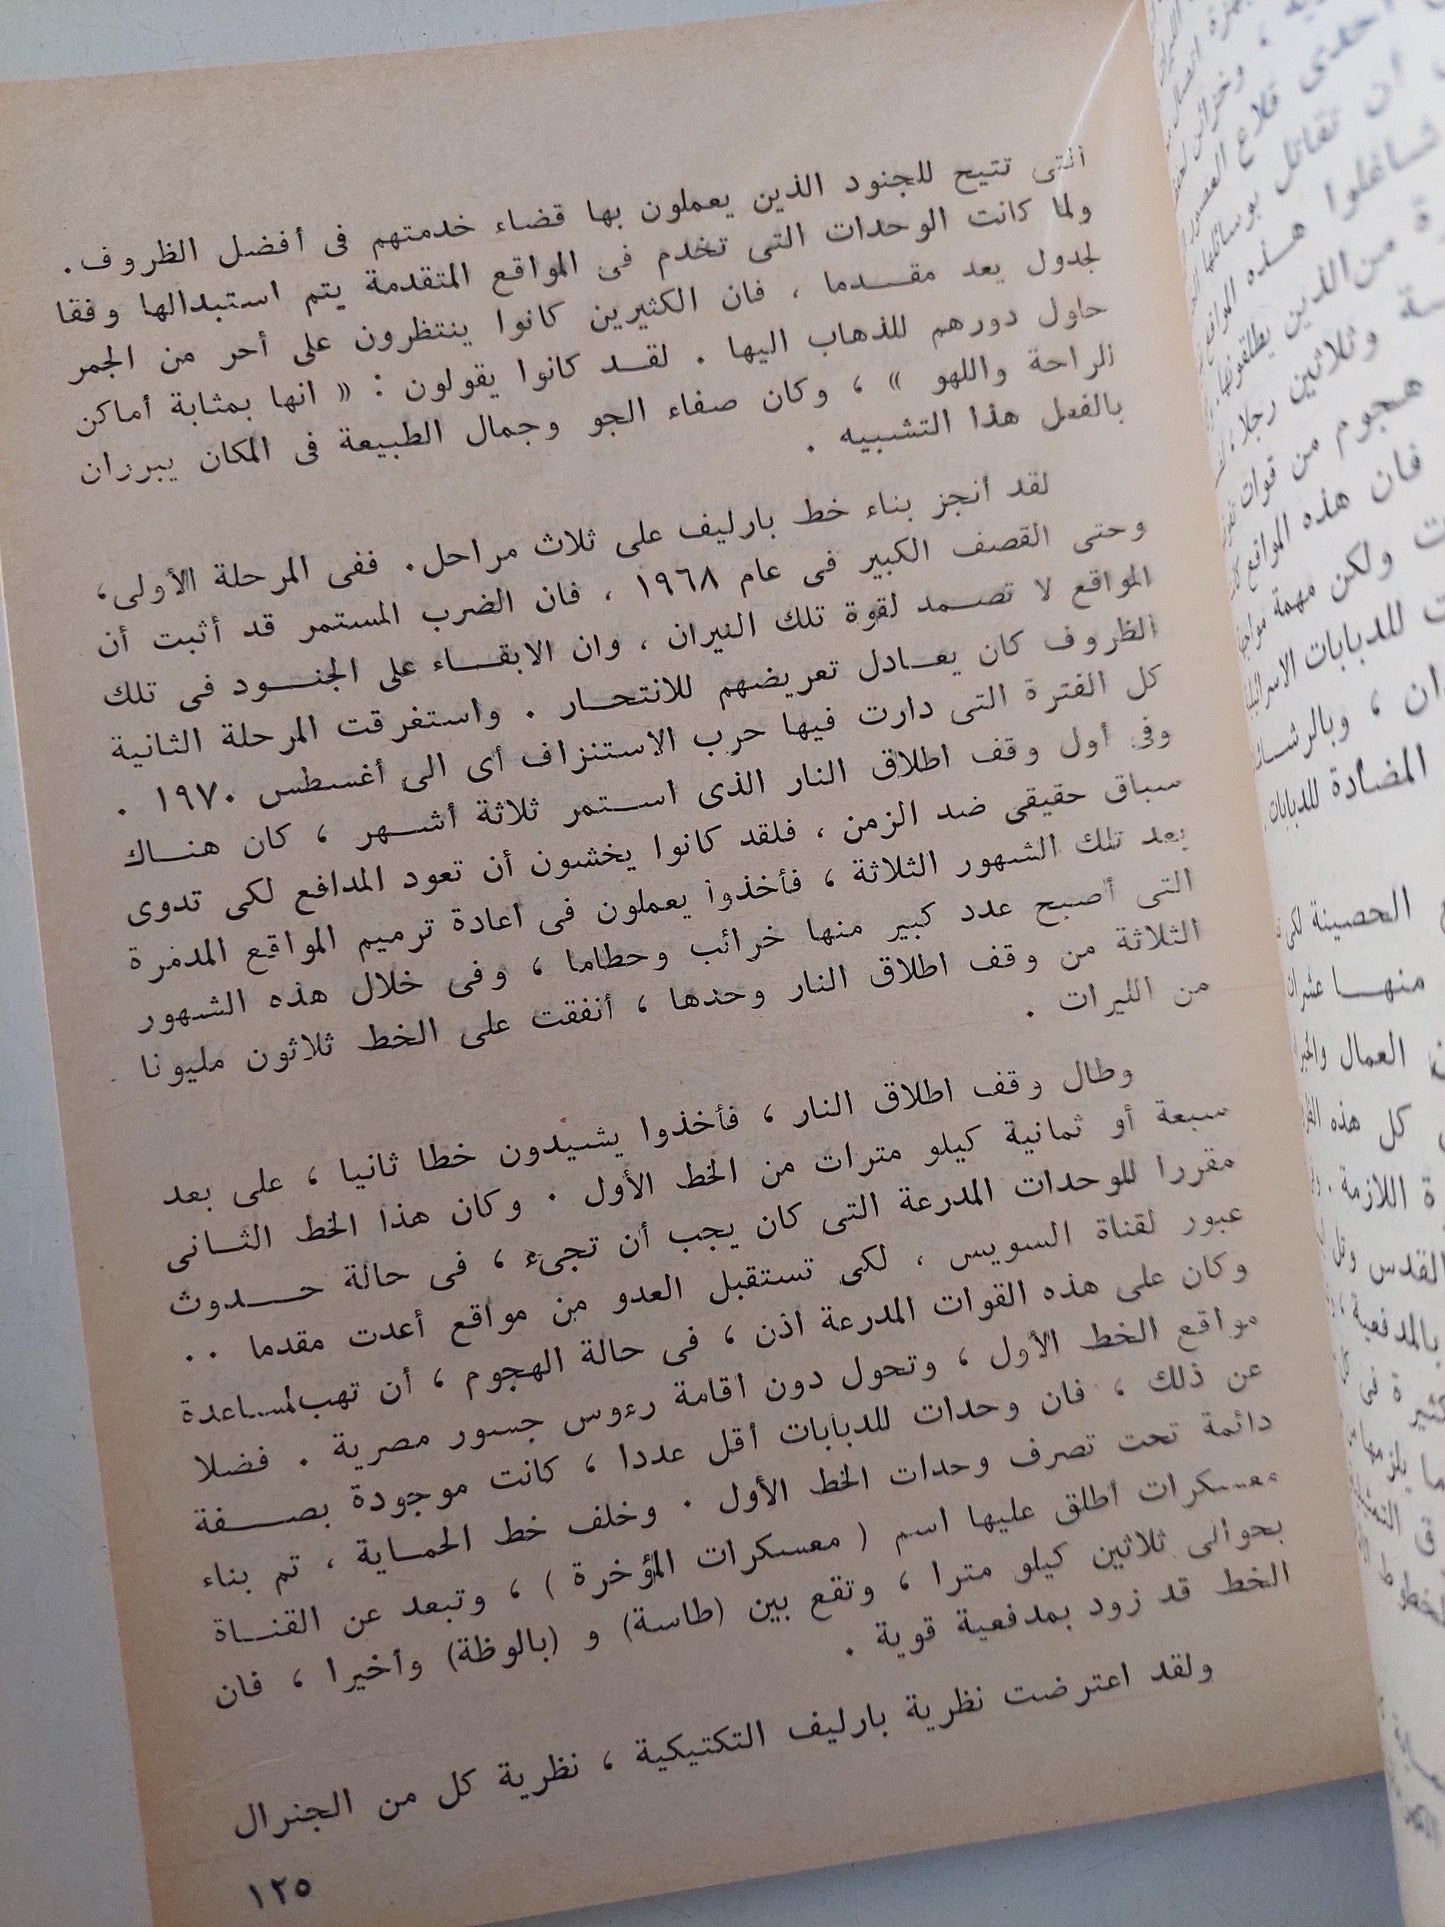 التى تتيح للجنود الذين يعملون بها قضاء خدمتهم فى أفضل الظروف .
ولما كانت الوحدات التى تخدم فى المواقع المتقدمة يتم استبدالها وفقا
لجدول يعد مقدما ، فان الكثيرين كانوا ينتظرون على أحر من الجمر
حاول دورهم للذهاب اليها . لقد كانوا يقولون : « انها بمثابة أماكن
للراحة واللهو » ، وكان صفاء الجو وجمال الطبيعة فى المكان يبرران
بالفعل هذا التشبيه .
لقد أنجز بناء خط بارليف على ثلاث مراحل . ففى المرحلة الأولى ،
وحتى القصف الكبير فى عام ١٩٦٨ ، فان الضرب المستمر قد أثبت أن
المواقع لا تصمد لقوة تلك النيران ، وان الابقاء على الجنود فى تلك
الظروف كان يعادل تعريضهم للانتحار . واستغرقت المرحلة الثانية
كل الفترة التى دارت فيها حرب الاستنزاف أى الى أغسطس ١٩٧٠ .
وفى أول وقف اطلاق النار الذى استمر ثلاثة أشهر ، كان هناك
سباق حقيقى ضد الزمن ، فلقد كانوا يخشون أن تعود المدافع لكى تدوى
بعد تلك الشهور الثلاثة ، فأخذوا يعملون فى اعادة ترميم المواقع المدمرة
التى أصبح عدد كبير منها خرائب وحطاما ، وفى خلال هذه الشهور
الثلاثة من وقف اطلاق النار وحدها ، أنفقت على الخط ثلاثون مليونا
من الليرات .
وطال وقف اطلاق النار ، فأخذوا يشيدون خطا ثانيا ، على بعد
سبعة أو ثمانية كيلو مترات من الخط الأول . وكان هذا الخط الثانى
مقررا للوحدات المدرعة التى كان يجب أن تجىء ، فى حالة حدوث
عبور لقناة السويس ، لكى تستقبل العدو من مواقع أعدت مقدما ..
وكان على هذه القوات المدرعة اذن ، فى حالة الهجوم ، أن تهب لمساعدة
مواقع الخط الأول ، وتحول دون اقامة رءوس جسور مصرية . فضلا
عن ذلك ، فان وحدات للدبابات أقل عددا ، كانت موجودة بصفة
دائمة تحت تصرف وحدات الخط الأول . وخلف خط الحماية ، تم بناء
معسكرات أطلق عليها اسم ( معسكرات المؤخرة ) ، وتبعد عن القناة
بحوالى ثلاثين كيلو مترا ، وتقع بين (طاسة) و (بالوظة) وأخيرا ، فان
الخط قد زود بمدفعية قوية .
ولقد اعترضت نظرية بارليف التكتيكية ، نظرية كل من الجنرال
١٢٥